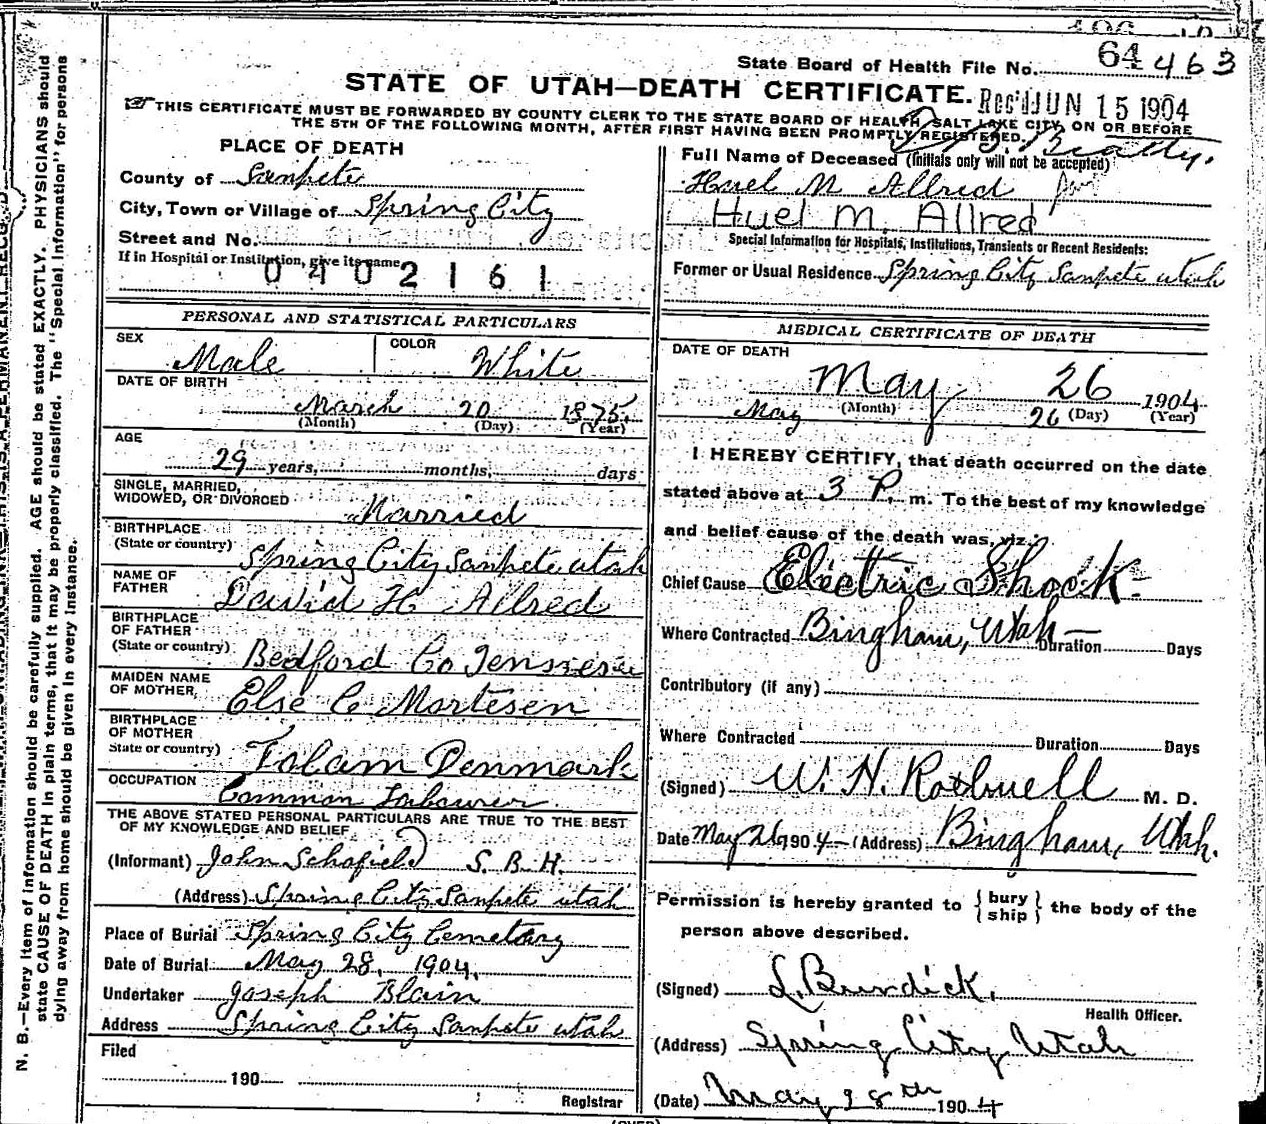 State Board of Health File No. 64 463
STATE OF UTAH—DEATH CERTIFICATE.
Rec'd JUN 15 1904
THIS CERTIFICATE MUST BE FORWARDED BY COUNTY CLERK TO THE STATE BOARD OF HEALTH, SALT LAKE CITY, ON OR BEFORE
THE 5TH OF THE FOLLOWING MONTH, AFTER FIRST HAVING BEEN PROMPTLY REGISTERED.
Beatty.
PLACE OF DEATH
County of Sanpete
City, Town or Village of Spring City
Street and No.
If in Hospital or Institution, give its name
0402161
Full Name of Deceased (Initials only will not be accepted)
Huel M Allred
Huel M. Allred
Special Information for Hospitals, Institutions, Transients or Recent Residents:
Former or Usual Residence Spring City Sanpete utah
PERSONAL AND STATISTICAL PARTICULARS
SEX Male COLOR White
DATE OF BIRTH
March 20 1875.
(Month) (Day) (Year)
AGE
29 years, months, days
SINGLE, MARRIED,
WIDOWED, OR DIVORCED Married
BIRTHPLACE
(State or country) Spring City Sanpete utah
NAME OF
FATHER David H Allred
BIRTHPLACE
OF FATHER
(State or country) Bedford Co Tennessee
MAIDEN NAME
OF MOTHER, Else C Mortesen
BIRTHPLACE
OF MOTHER
State or country) Folam Denmark
OCCUPATION Common Labourer
THE ABOVE STATED PERSONAL PARTICULARS ARE TRUE TO THE BEST
OF MY KNOWLEDGE AND BELIEF
(Informant) John Schofield S. B. H.
(Address) Spring City Sanpete utah
Place of Burial Spring City Cemetary
Date of Burial May 28, 1904.
Undertaker Joseph Blain
Address Spring City Sanpete utah
Filed
190
Registrar
MEDICAL CERTIFICATE OF DEATH
DATE OF DEATH
May 26 1904
May (Month) 26 (Day) (Year)
I HEREBY CERTIFY, that death occurred on the date
stated above at 3 P. m. To the best of my knowledge
and belief cause of the death was, viz.
Chief Cause Electric Shock
Where Contracted Bingham, Utah— Duration Days
Contributory (if any)
Where Contracted Duration Days
(Signed) W. H. Rothwell M. D.
Date May 26 1904 (Address) Bingham, Utah.
Permission is hereby granted to {bury
ship} the body of the
person above described.
(Signed) L. Burdick,
Health Officer.
(Address) Spring City Utah
(Date) May 28th 1904
(OVER)
N. B.—Every item of information should be carefully supplied. AGE should be stated EXACTLY. PHYSICIANS should
state CAUSE OF DEATH in plain terms, that it may be properly classified. The "Special Information" for persons
dying away from home should be given in every instance.